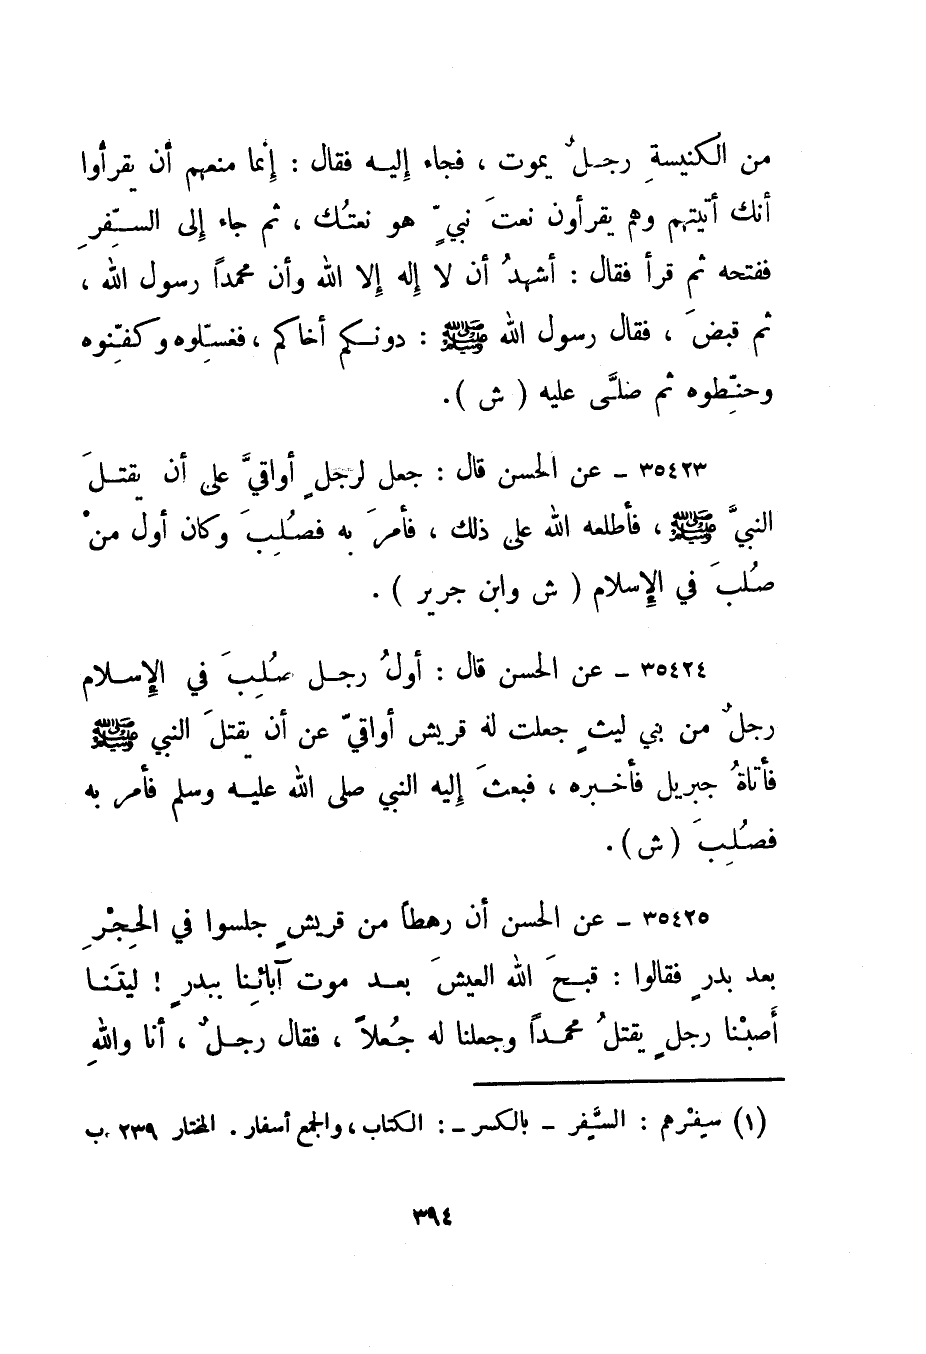 من الكنيسةِ رجلٌ يموت ، فجاء إليه فقال : إنما منعهم أن يقرأوا
أنك أتيتهم وهم يقرأون نعتَ نبيٍّ هو نعتُك ، ثم جاء إلى السِّفرِ
ففتحه ثم قرأ فقال : أشهدُ أن لا إله إلا الله وأن محمداً رسول الله ،
ثم قبضَ ، فقال رسول الله ﷺ : دونكم أخاكم ، فغسِّلوه وكفِّنوه
وحنِّطوه ثم صلَّى عليه ( ش ) .
٣٥٤٢٣ ـ عن الحسن قال : جعل لرجلٍ أواقيَّ على أن يقتلَ
النبيَّ ﷺ ، فأطلعه الله على ذلك ، فأمرَ به فصُلِبَ وكان أول منْ
صُلبَ في الإسلام ( ش وابن جرير ) .
٣٥٤٢٤ ـ عن الحسن قال : أولُ رجل صُلِبَ في الإسلام
رجلٌ من بني ليثٍ جعلت له قريش أواقيّ عن أن يقتلَ النبي ﷺ
فأتاهُ جبريل فأخبره ، فبعثَ إليه النبي صلى الله عليه وسلم فأمر به
فصُلِبَ ( ش ) .
٣٥٤٢٥ ـ عن الحسن أن رهطاً من قريشٍ جلسوا في الحِجْرِ
بعد بدرٍ فقالوا : قبحَ الله العيشَ بعد موت آبائِنا ببدرٍ ! ليتَنا
أَصبْنا رجلٍ يقتلُ محمداً وجعلنا له جُعلاً ، فقال رجلٌ ، أنا واللهِ
(١) سِفْرهم : السَّفر ـ بالكسر ـ : الكتاب ، والجمع أسفار . المختار ٢٣٩ . ب
٣٩٤